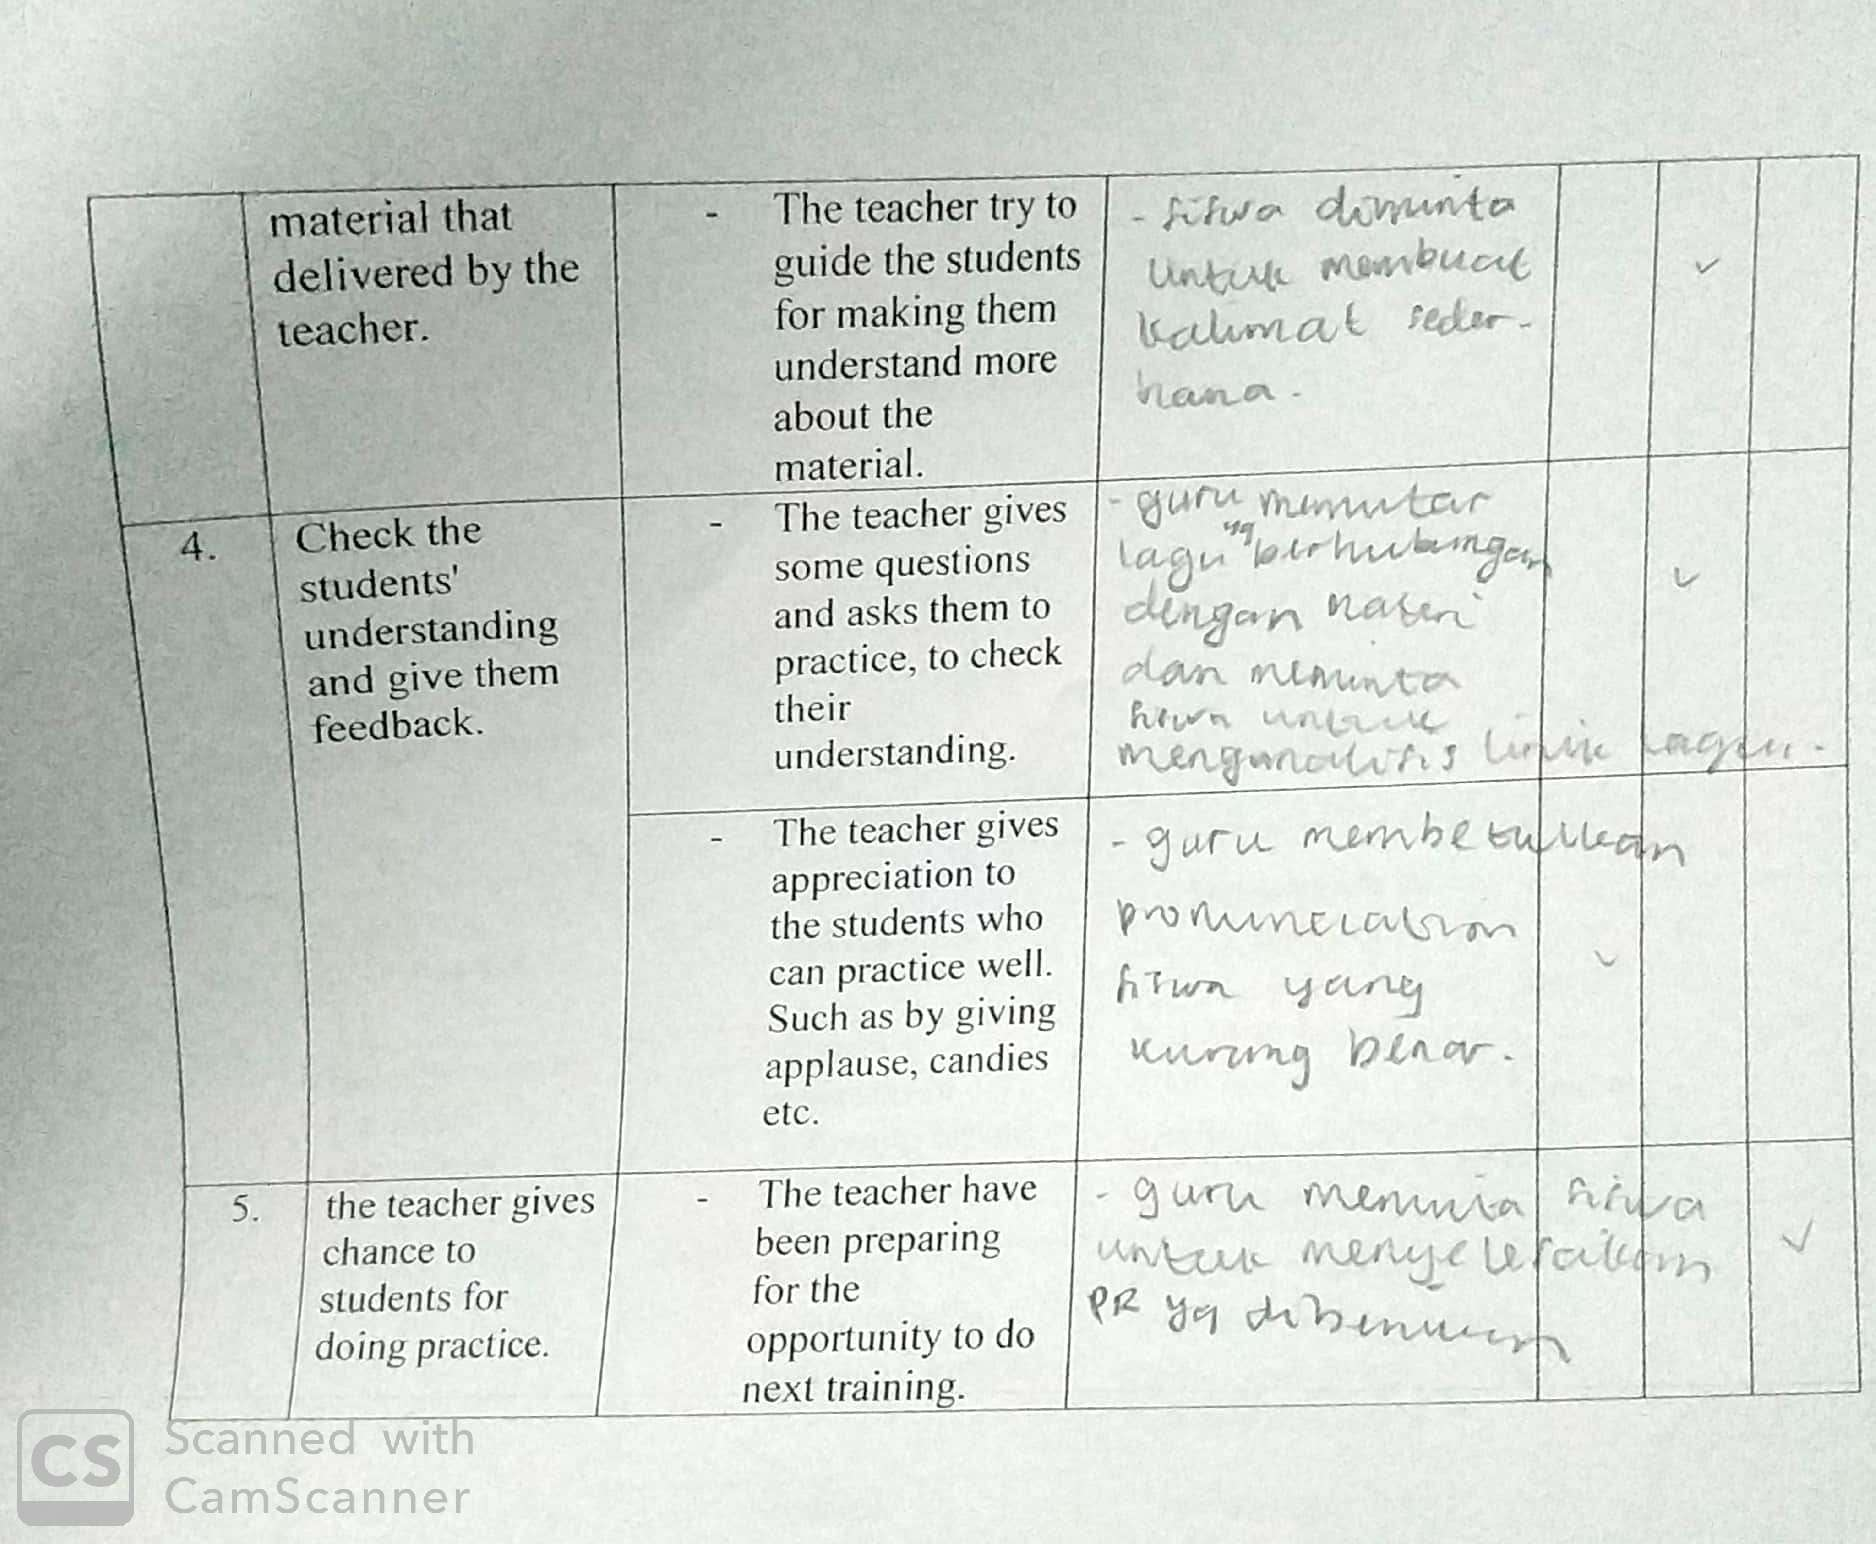 material that
delivered by the
teacher.
- The teacher try to
guide the students
for making them
understand more
about the
material.
- siswa diminta
untuk membuat
kalimat seder-
hana.
4.
Check the
students'
understanding
and give them
feedback.
- The teacher gives
some questions
and asks them to
practice, to check
their
understanding.
- guru memutar
lagu yg berhubungan
dengan materi
dan meminta
siswa untuk
menganalisis lirik lagu.
- The teacher gives
appreciation to
the students who
can practice well.
Such as by giving
applause, candies
etc.
- guru membetulkan
pronunciation
siswa yang
kurang benar.
5.
the teacher gives
chance to
students for
doing practice.
- The teacher have
been preparing
for the
opportunity to do
next training.
- guru meminta siswa
untuk menyelesaikan
PR yg
CS
Scanned with
CamScanner